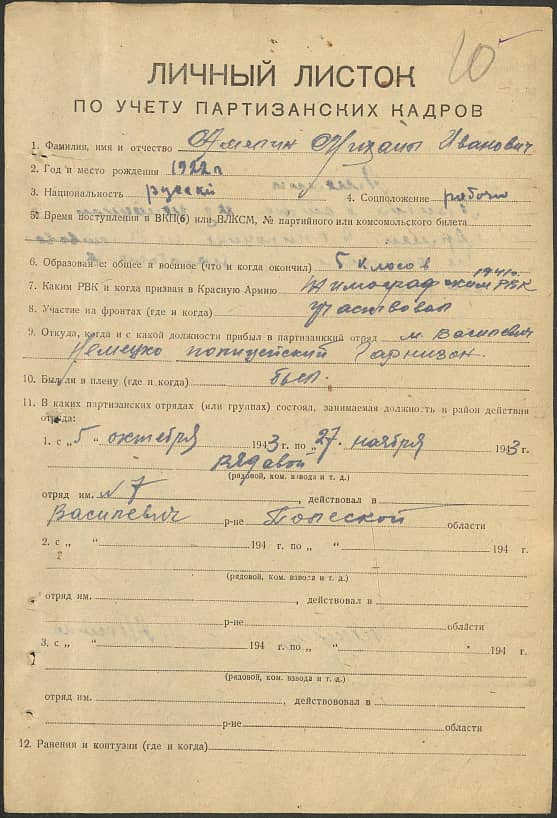 10
ЛИЧНЫЙ ЛИСТОК
ПО УЧЕТУ ПАРТИЗАНСКИХ КАДРОВ
1. Фамилия, имя и отчество Амелин Михаил Иванович
2. Год и место рождения 1922 г.
3. Национальность русский 4. Соцположение рабочий
5. Время поступления в ВКП(б) или ВЛКСМ, № партийного или комсомольского билета
6. Образование: общее и военное (что и когда окончил) 5 класов
1941 г.
7. Каким РВК и когда призван в Красную Армию РВК
8. Участие на фронтах (где и когда) участвовал
9. Откуда, когда и с какой должности прибыл в партизанский отряд м. Василевич
Немецко полицейский Гарнизон.
10. Был ли в плену (где и когда) был
11. В каких партизанских отрядах (или группах) состоял, занимаемая должность и район действия
отряда:
1. с „ 5 " октября 1943 г. по „ 27. " ноября 1943 г.
рядавой
(рядовой, ком. взвода и т. д.)
отряд им. №7, действовал в
Василевич р-не Полеской области
2. с „ " 194 г. по „ " 194 г.
(рядовой, ком. взвода и т. д.)
отряд им. , действовал в
р-не области
3. с „ " 194 г. по „ " 194 г.
(рядовой, ком. взвода и т. д.)
отряд им. , действововал в
р-не области
12. Ранения и контузии (где и когда)